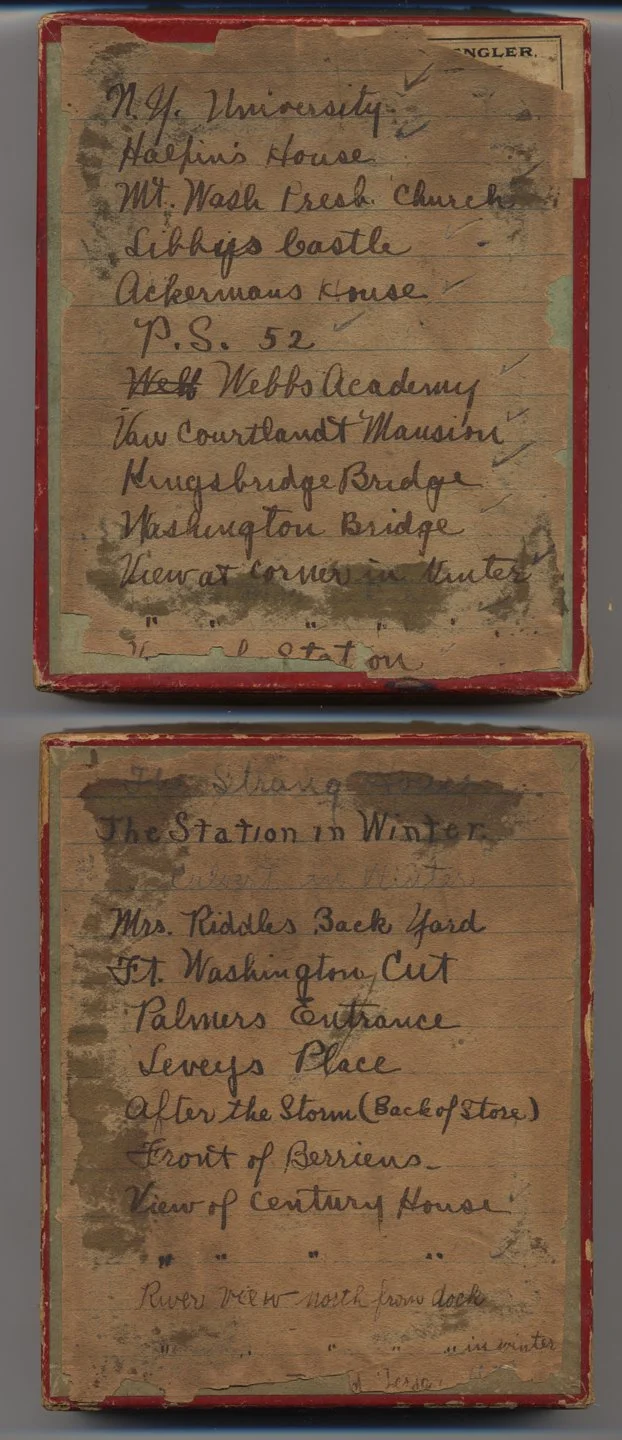 ENGLER.
N.Y. University
Halpin's House
Mt. Wash Presb. Church
Libbys Castle
Ackermans House
P.S. 52
Webb Webbs Academy
Van Courtlandt Mansion
Kingsbridge Bridge
Washington Bridge
View at corner in Winter
" " " " "
Station
The Strang House
The Station in Winter.
Culvert in Winter
Mrs. Riddles Back Yard
Ft. Washington Cut
Palmers Entrance
Leveys Place
After the Storm (Back of Store)
Front of Berriens
View of Century House
" " " "
River View north from dock
" " " " " in winter